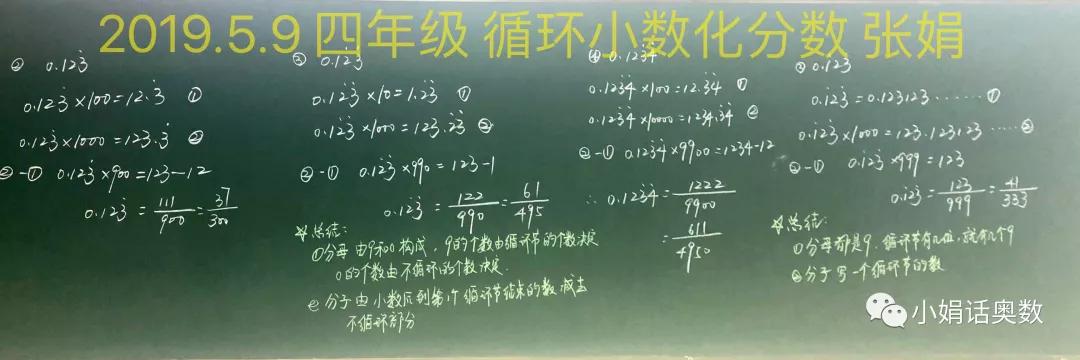 2019.5.9 四年级 循环小数化分数 张娟
② 0.123̇
0.123̇×100=12.3̇ ①
0.123̇×1000=123.3̇ ②
②-① 0.123̇×900=123-12
0.123̇=111/900=37/300
③ 0.12̇3̇
0.12̇3̇×10=1.2̇3̇ ①
0.12̇3̇×1000=123.2̇3̇ ②
②-① 0.12̇3̇×990=123-1
0.12̇3̇=122/990=61/495
☆总结:
①分母由9和0构成,9的个数由循环节的个数决定
0的个数由不循环的个数决定.
②分子由小数点到第1个循环节结束的数减去
不循环部分
④ 0.123̇4̇
0.123̇4̇×100=12.3̇4̇ ①
0.123̇4̇×10000=1234.3̇4̇ ②
②-① 0.123̇4̇×9900=1234-12
∴ 0.123̇4̇=1222/9900
=611/4950
0.1̇23̇
0.1̇23̇=0.123123…… ①
0.1̇23̇×1000=123.123123…… ②
②-① 0.1̇23̇×999=123
0.1̇23̇=123/999=41/333
☆总结:
①分母都是9.循环节有几位,就有几个9
②分子写一个循环节的数
小娟话奥数